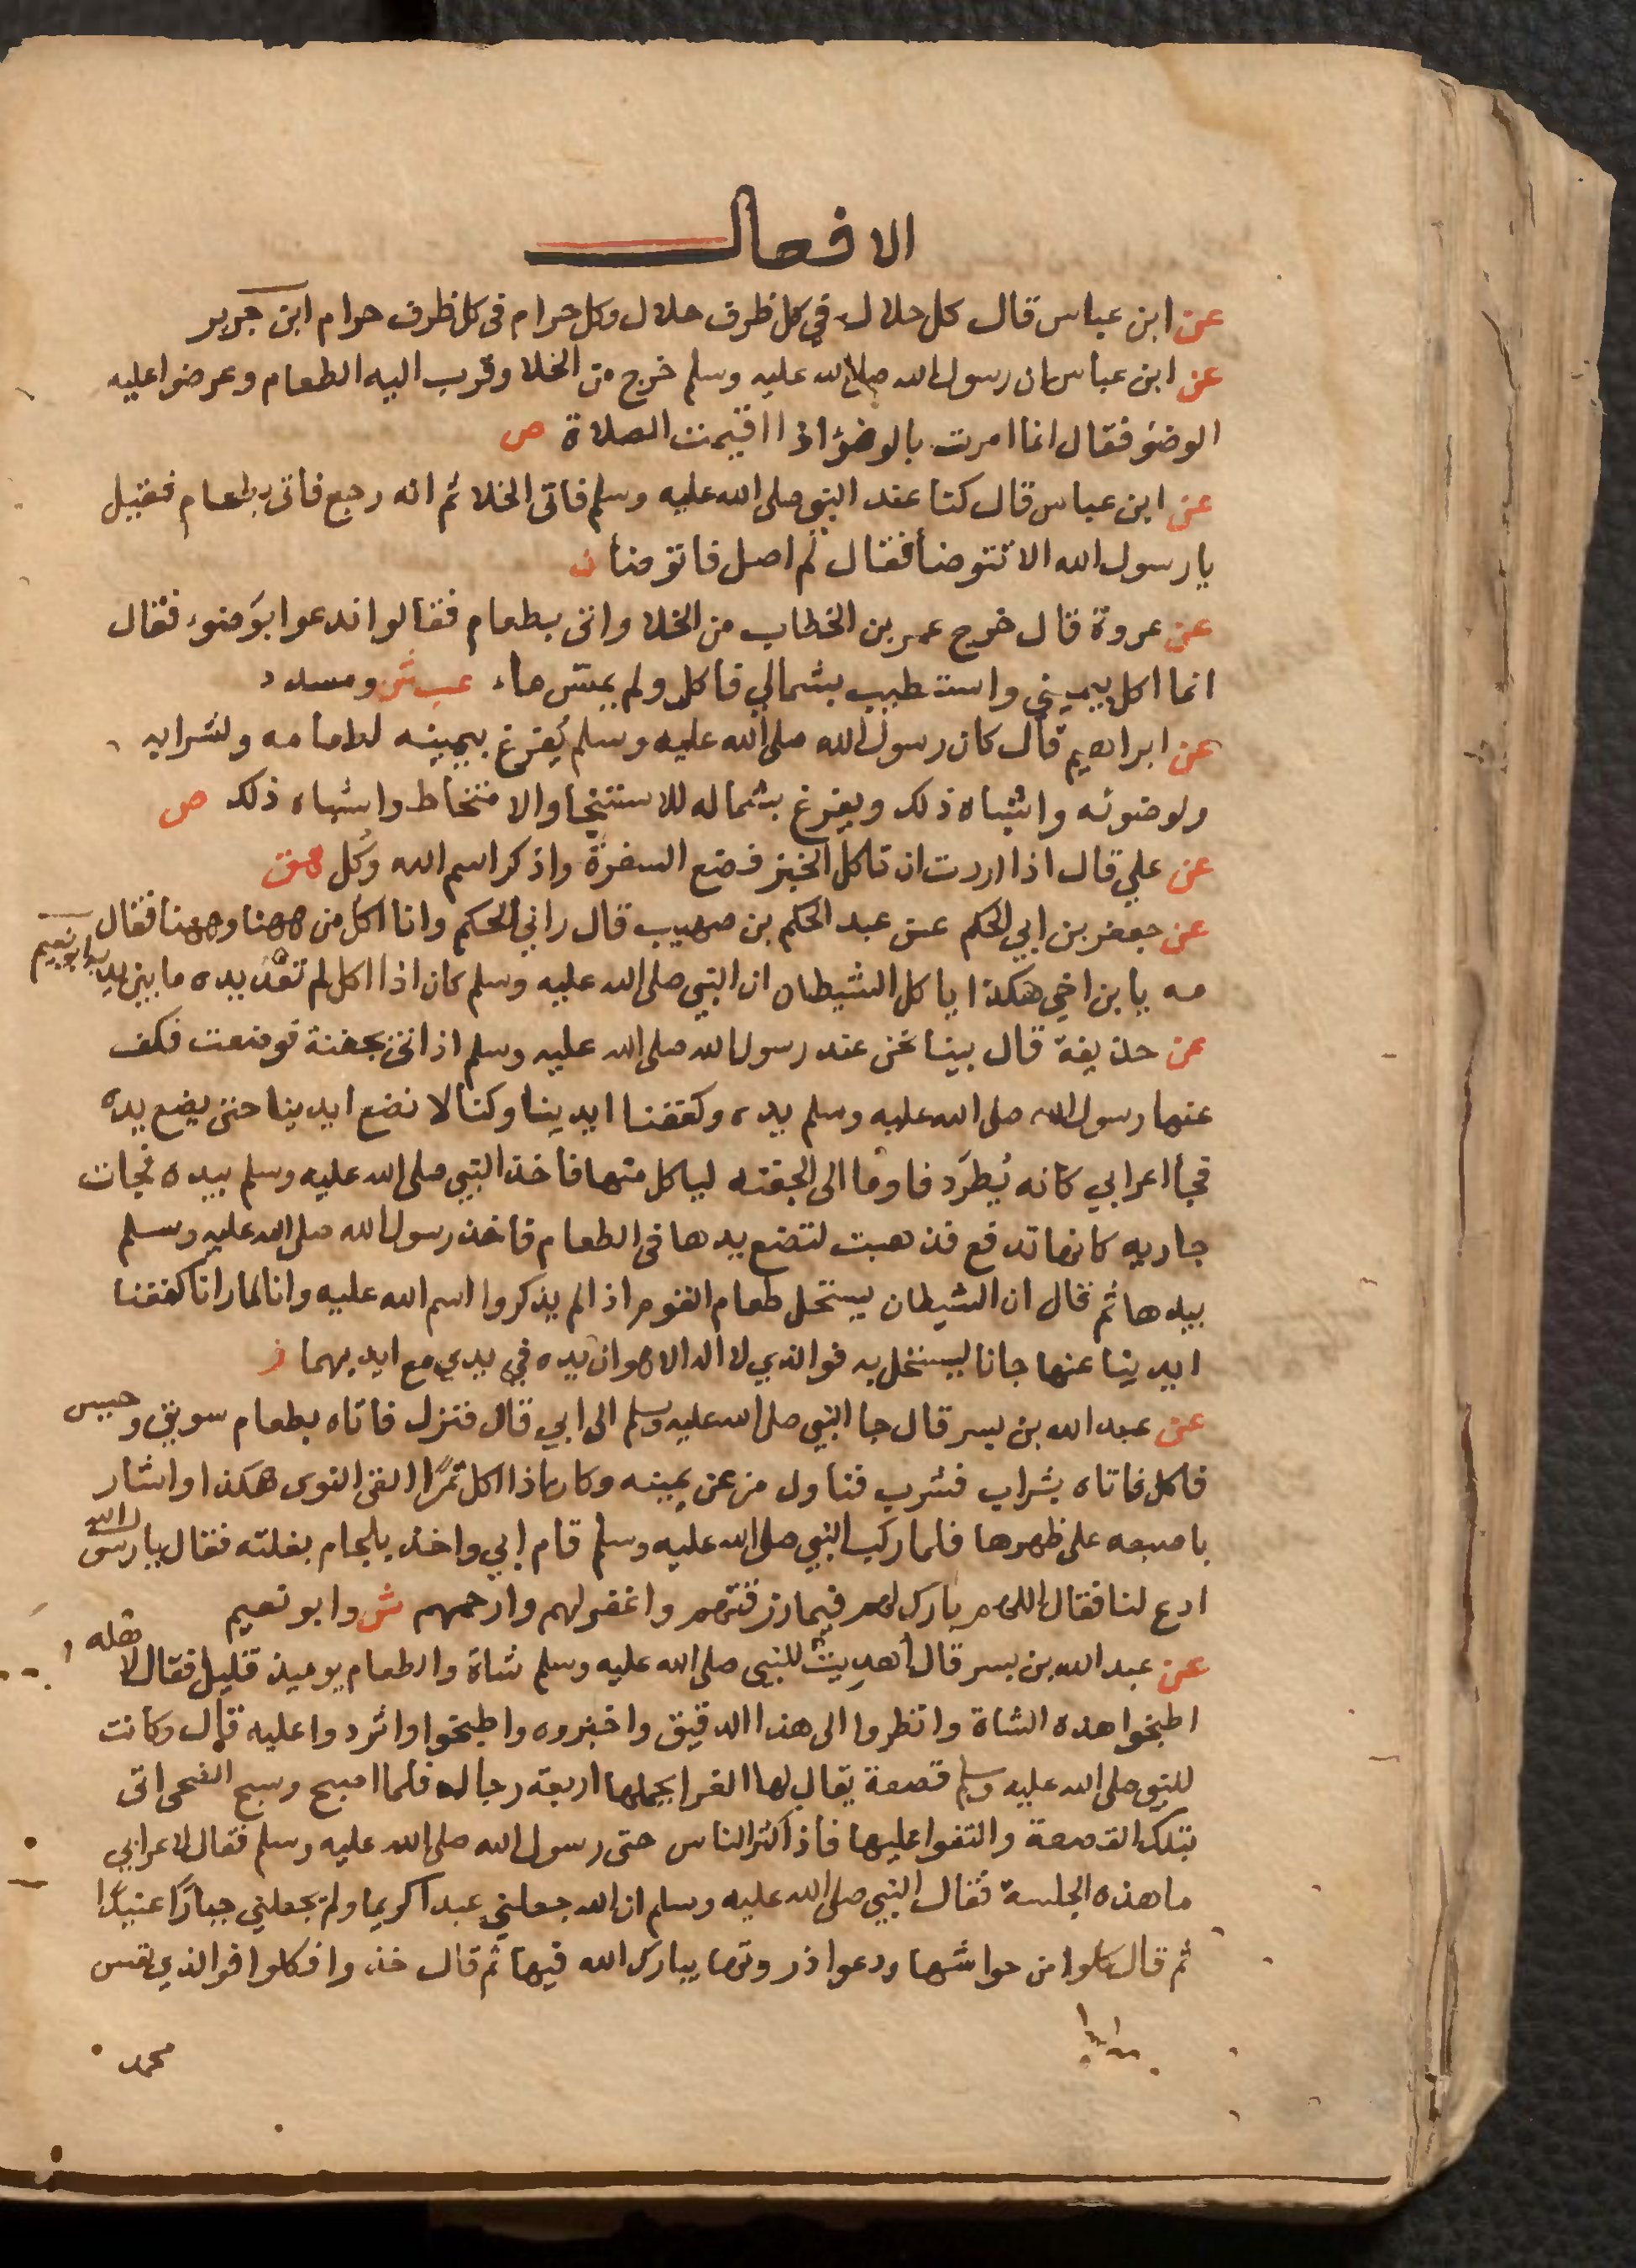 الافعال
عن ابن عباس قال كل حلال في كل ظرف حلال وكل حرام في كل ظرف حرام ابن جرير
عن ابن عباس ان رسول الله صلى الله عليه وسلم خرج من الخلا وقرب اليه الطعام وعرضوا عليه
الوضؤ فقال انما امرت بالوضؤ اذا اقيمت الصلاة ص
عن ابن عباس قال كنا عند النبي صلى الله عليه وسلم فاتى الخلا ثم انه رجع فاتى بطعام فقيل
يا رسول الله الا تتوضأ فقال لم اصل فاتوضأ ن
عن عروة قال خرج عمر بن الخطاب من الخلا واتى بطعام فقالوا ندعوا بوَضوء فقال
انما اكل بيميني واستطيب بشمالي فاكل ولم يمس ماء عب ش ومسدد
عن ابراهيم قال كان رسول الله صلى الله عليه وسلم يُفرغ بيمينه لطعامه ولشرابه
ولوضوئه واشباه ذلك ويفرغ بشماله للاستنجا والامتخاط واشباه ذلك ص
عن علي قال اذا اردت ان تاكل الخبز فضع السفرة واذكر اسم الله وكُل هق
عن جعفر بن ابي الحكم عن عبد الحكم بن صهيب قال راني الحكم وانا اكل من ههنا وههنا فقال
مه يا بن اخي هكذا ياكل الشيطان ان النبي صلى الله عليه وسلم كان اذا اكل لم تعْدُ يده ما بين يديه ابو نعيم
عن حذيفة قال بينا نحن عند رسول الله صلى الله عليه وسلم اذ اتى بجفنة فوضعت فكف
عنها رسول الله صلى الله عليه وسلم يده وكففنا ايدينا وكنا لا نضع ايدينا حتى يضع يده
فجأ اعرابي كانه يُطرَد فاوما الى الجفنه لياكل منها فاخذ النبي صلى الله عليه وسلم بيده فجات
جاريه كانها تدفع فذهبت لتضع يدها في الطعام فاخذ رسول الله صلى الله عليه وسلم
بيدها ثم قال ان الشيطان يستحل طعام القوم اذا لم يذكروا اسم الله عليه وانا لما رانا كففنا
ايدينا عنها جانا ليستحل به فوالذي لا اله الا هو ان يده في يدي مع ايديهما ز
عن عبد الله بن بسر قال جا النبي صلى الله عليه وسلم الى ابي قال فنزل فاتاه بطعام سويق وحيس
فاكل فاتاه بشراب فشرب فناول من عن يمينه وكان اذا اكل تمرًا القى النوى هكذا واشار
باصبعه على ظهرها فلما ركب النبي صلى الله عليه وسلم قام ابي واخذ بلجام بغلته فقال يا رسول الله
ادع لنا فقال اللهم بارك لهم فيما رزقتهم واغفر لهم وارحمهم ش وابو نعيم
عن عبد الله بن بسر قال أهديتُ للنبي صلى الله عليه وسلم شاة والطعام يوميذ قليل فقال لاهله
اطبخوا هذه الشاة وانظروا الى هذا الدقيق واخبزوه واطبخوا واثردوا عليه قال وكانت
للنبي صلى الله عليه وسلم قصعة يقال لها الغرا يحملها اربعة رجال فلما اصبح وسبح الضحى اتى
بتلك القصعة والتفوا عليها فاذا كثر الناس حتى رسول الله صلى الله عليه وسلم فقال لاعرابي
ما هذه الجلسة فقال النبي صلى الله عليه وسلم ان الله جعلني عبداً كريما ولم يجعلني جبارًا عنيدًا
ثم قال كلوا من حواشها ودعوا ذروتها يبارك الله فيها ثم قال خذوا فكلوا فوالذي نفس
محمد